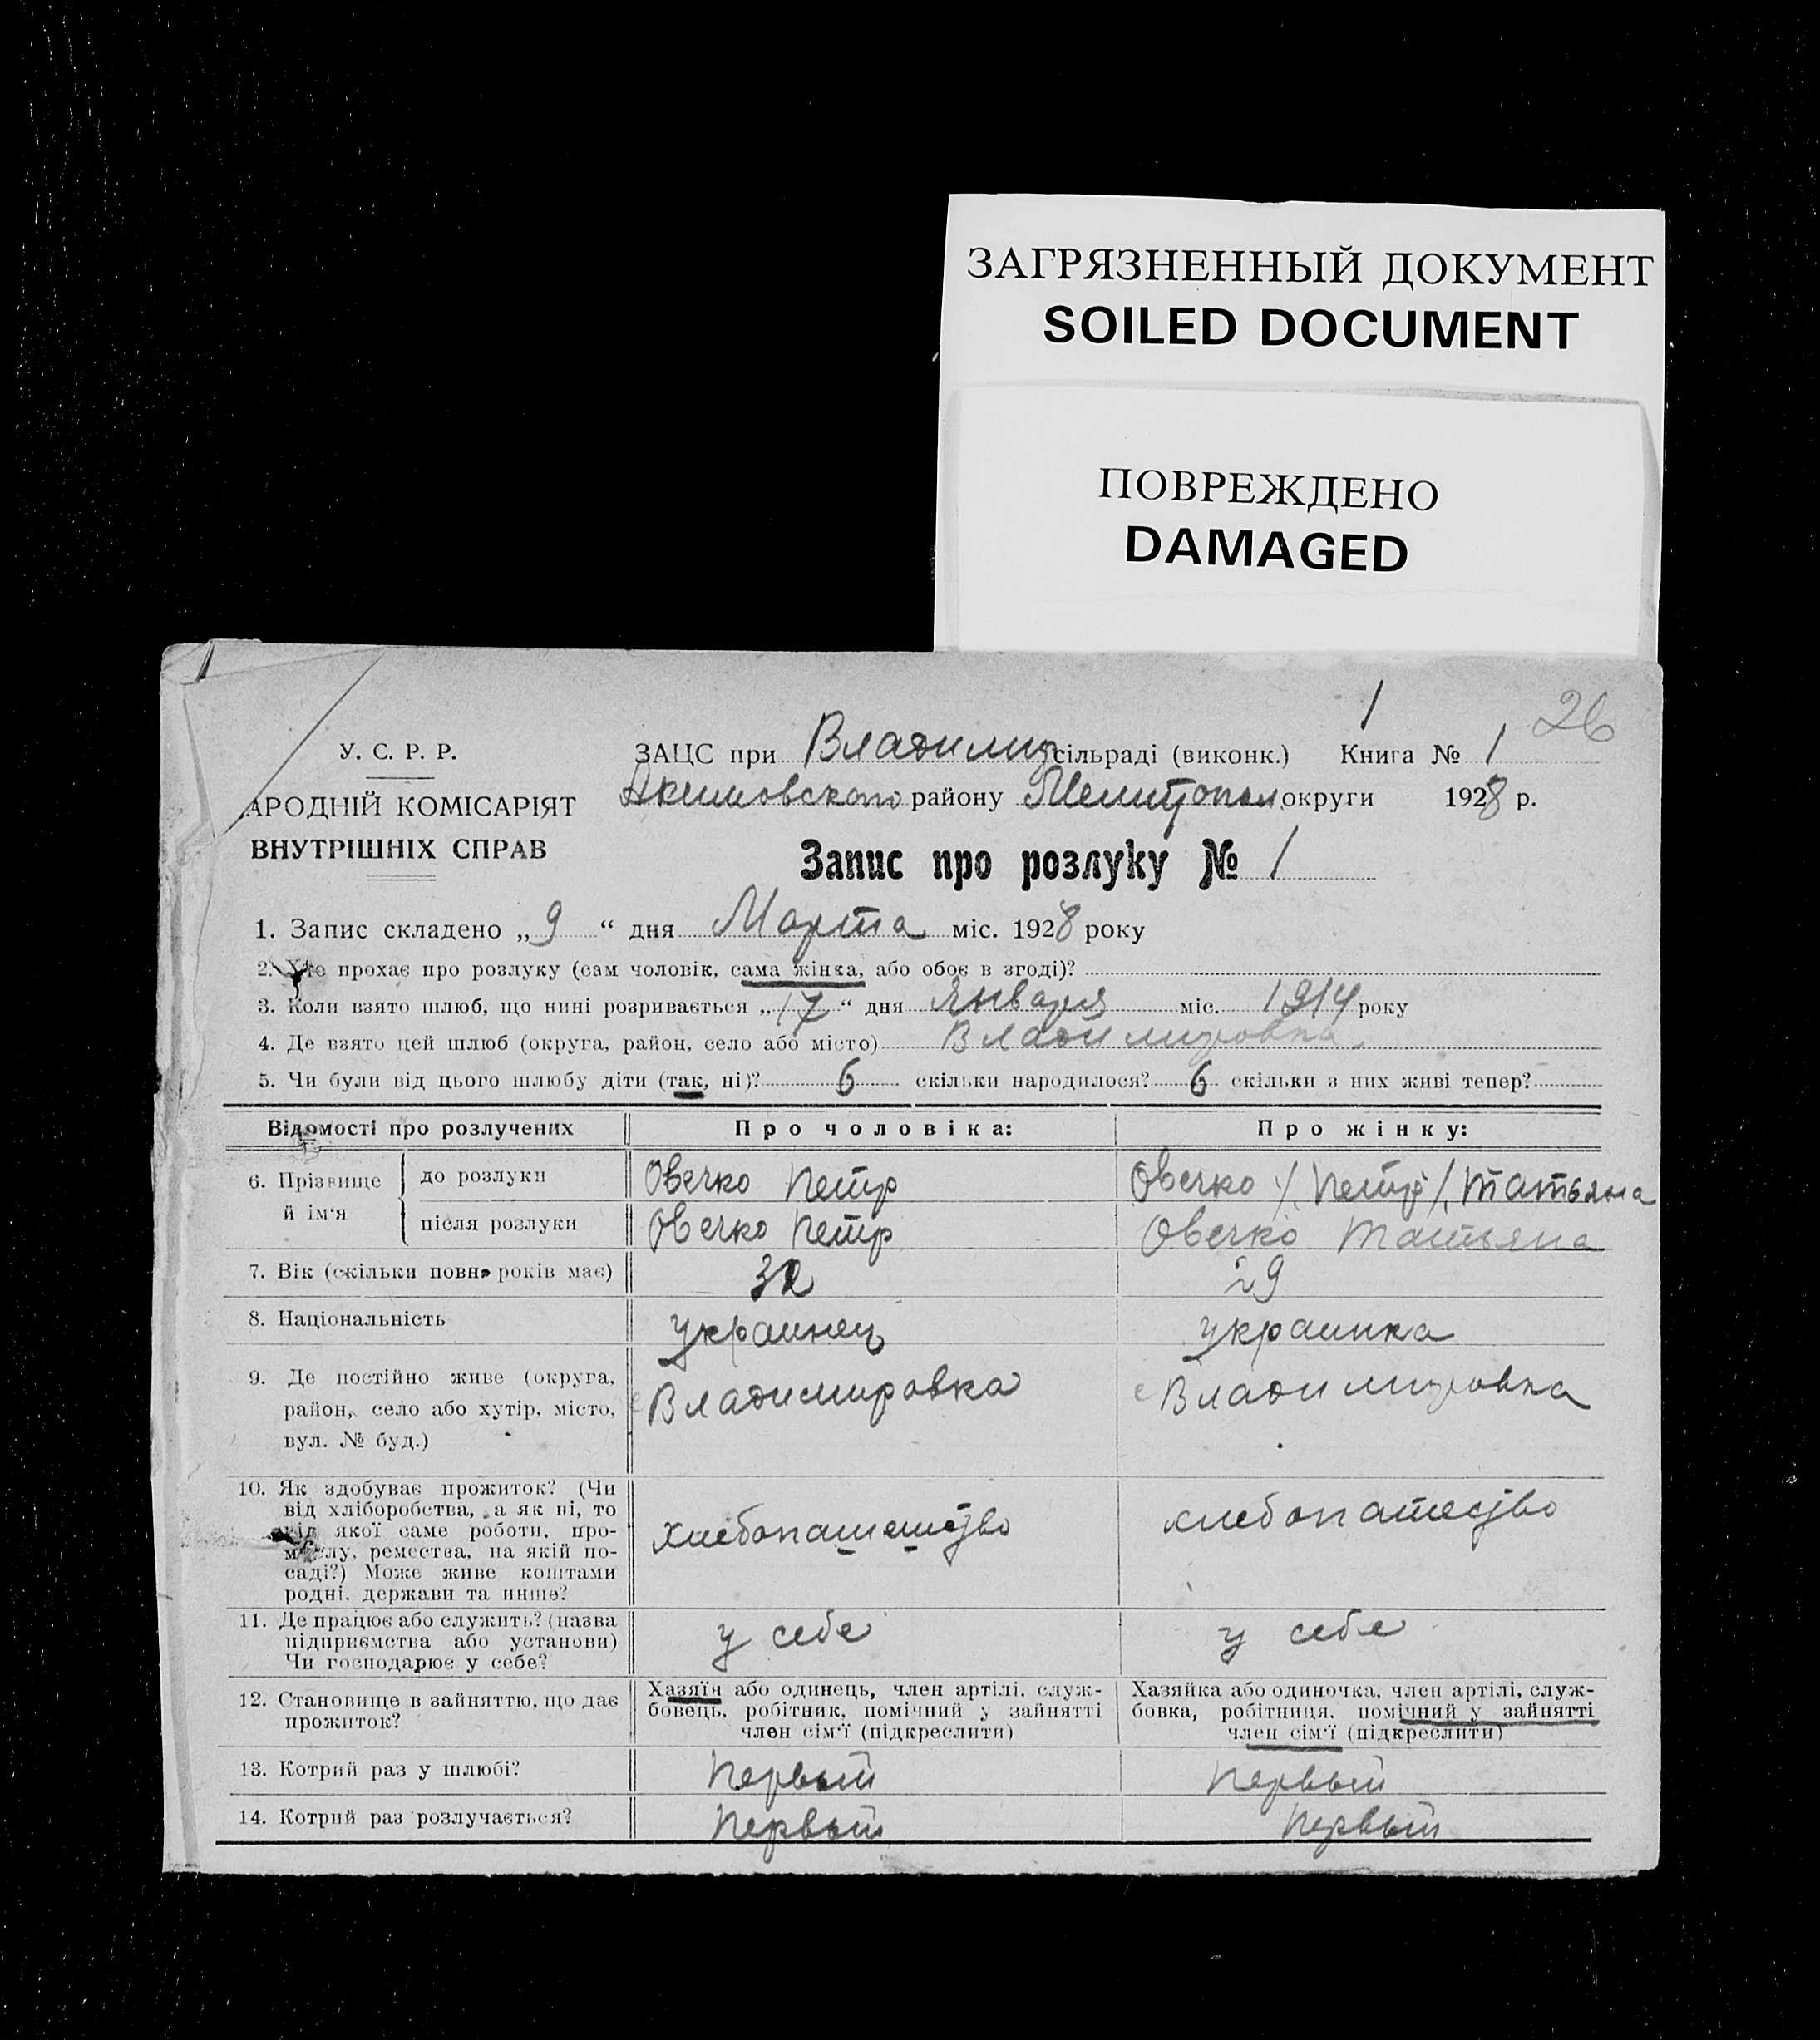 ЗАГРЯЗНЕННЫЙ ДОКУМЕНТ
SOILED DOCUMENT
ПОВРЕЖДЕНО
DAMAGED
1 26
У. С. Р. Р.
АРОДНІЙ КОМІСАРІЯТ
ВНУТРІШНІХ СПРАВ
ЗАЦС при Владимир сільраді (виконк.) Книга № 1
Акимовского району Мелитопол округи 1928 р.
Запис про розлуку № 1
1. Запис складено „9“ дня Марта міс. 1928 року
2. Хто прохає про розлуку (сам чоловік, сама жінка, або обоє в згоді)?
3. Коли взято шлюб, що нині розривається „17“ дня Января міс. 1914 року
4. Де взято цей шлюб (округа, район, село або місто) Владимировка
5. Чи були від цього шлюбу діти (так, ні)? 6 скільки народилося? 6 скільки з них живі тепер?
Відомості про розлучених Про чоловіка: Про жінку:
6. Прізвище й ім'я до розлуки Овечко Петр Овечко /Петр/ Татьяна
після розлуки Овечко Петр Овечко Татьяна
7. Вік (скільки повн. років має) 32 29
8. Національність украинец украинка
9. Де постійно живе (округа, район, село або хутір, місто, вул. № буд.) с Владимировка с Владимировка
10. Як здобуває прожиток? (Чи
від хліборобства, а як ні, то
від якої саме роботи, про-
мислу, ремества, на якій по-
саді?) Може живе коштами
родні, держави та инше?
хлебопашество хлебопашество
11. Де працює або служить? (назва
підприємства або установи)
Чи господарює у себе?
у себе у себе
12. Становище в зайняттю, що дає
прожиток?
Хазяїн або одинець, член артілі, служ-
бовець, робітник, помічний у зайнятті
член сім'ї (підкреслити)
Хазяйка або одиночка, член артілі, служ-
бовка, робітниця, помічний у зайнятті
член сім'ї (підкреслити)
13. Котрий раз у шлюбі? Первый Первый
14. Котрий раз розлучається? Первый Первый